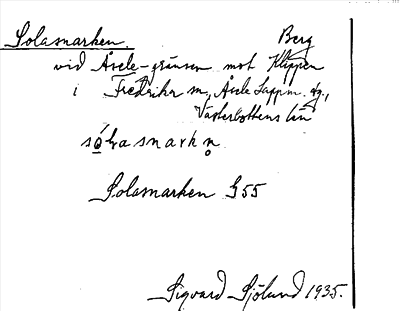 Solasmarken Berg
vid Åsele-gränsen mot Klippen
i Fredrika sn., Åsele lappm. dg.,
Västerbottens län
Solasmarken § 55
Sigvard Sjölund 1935.